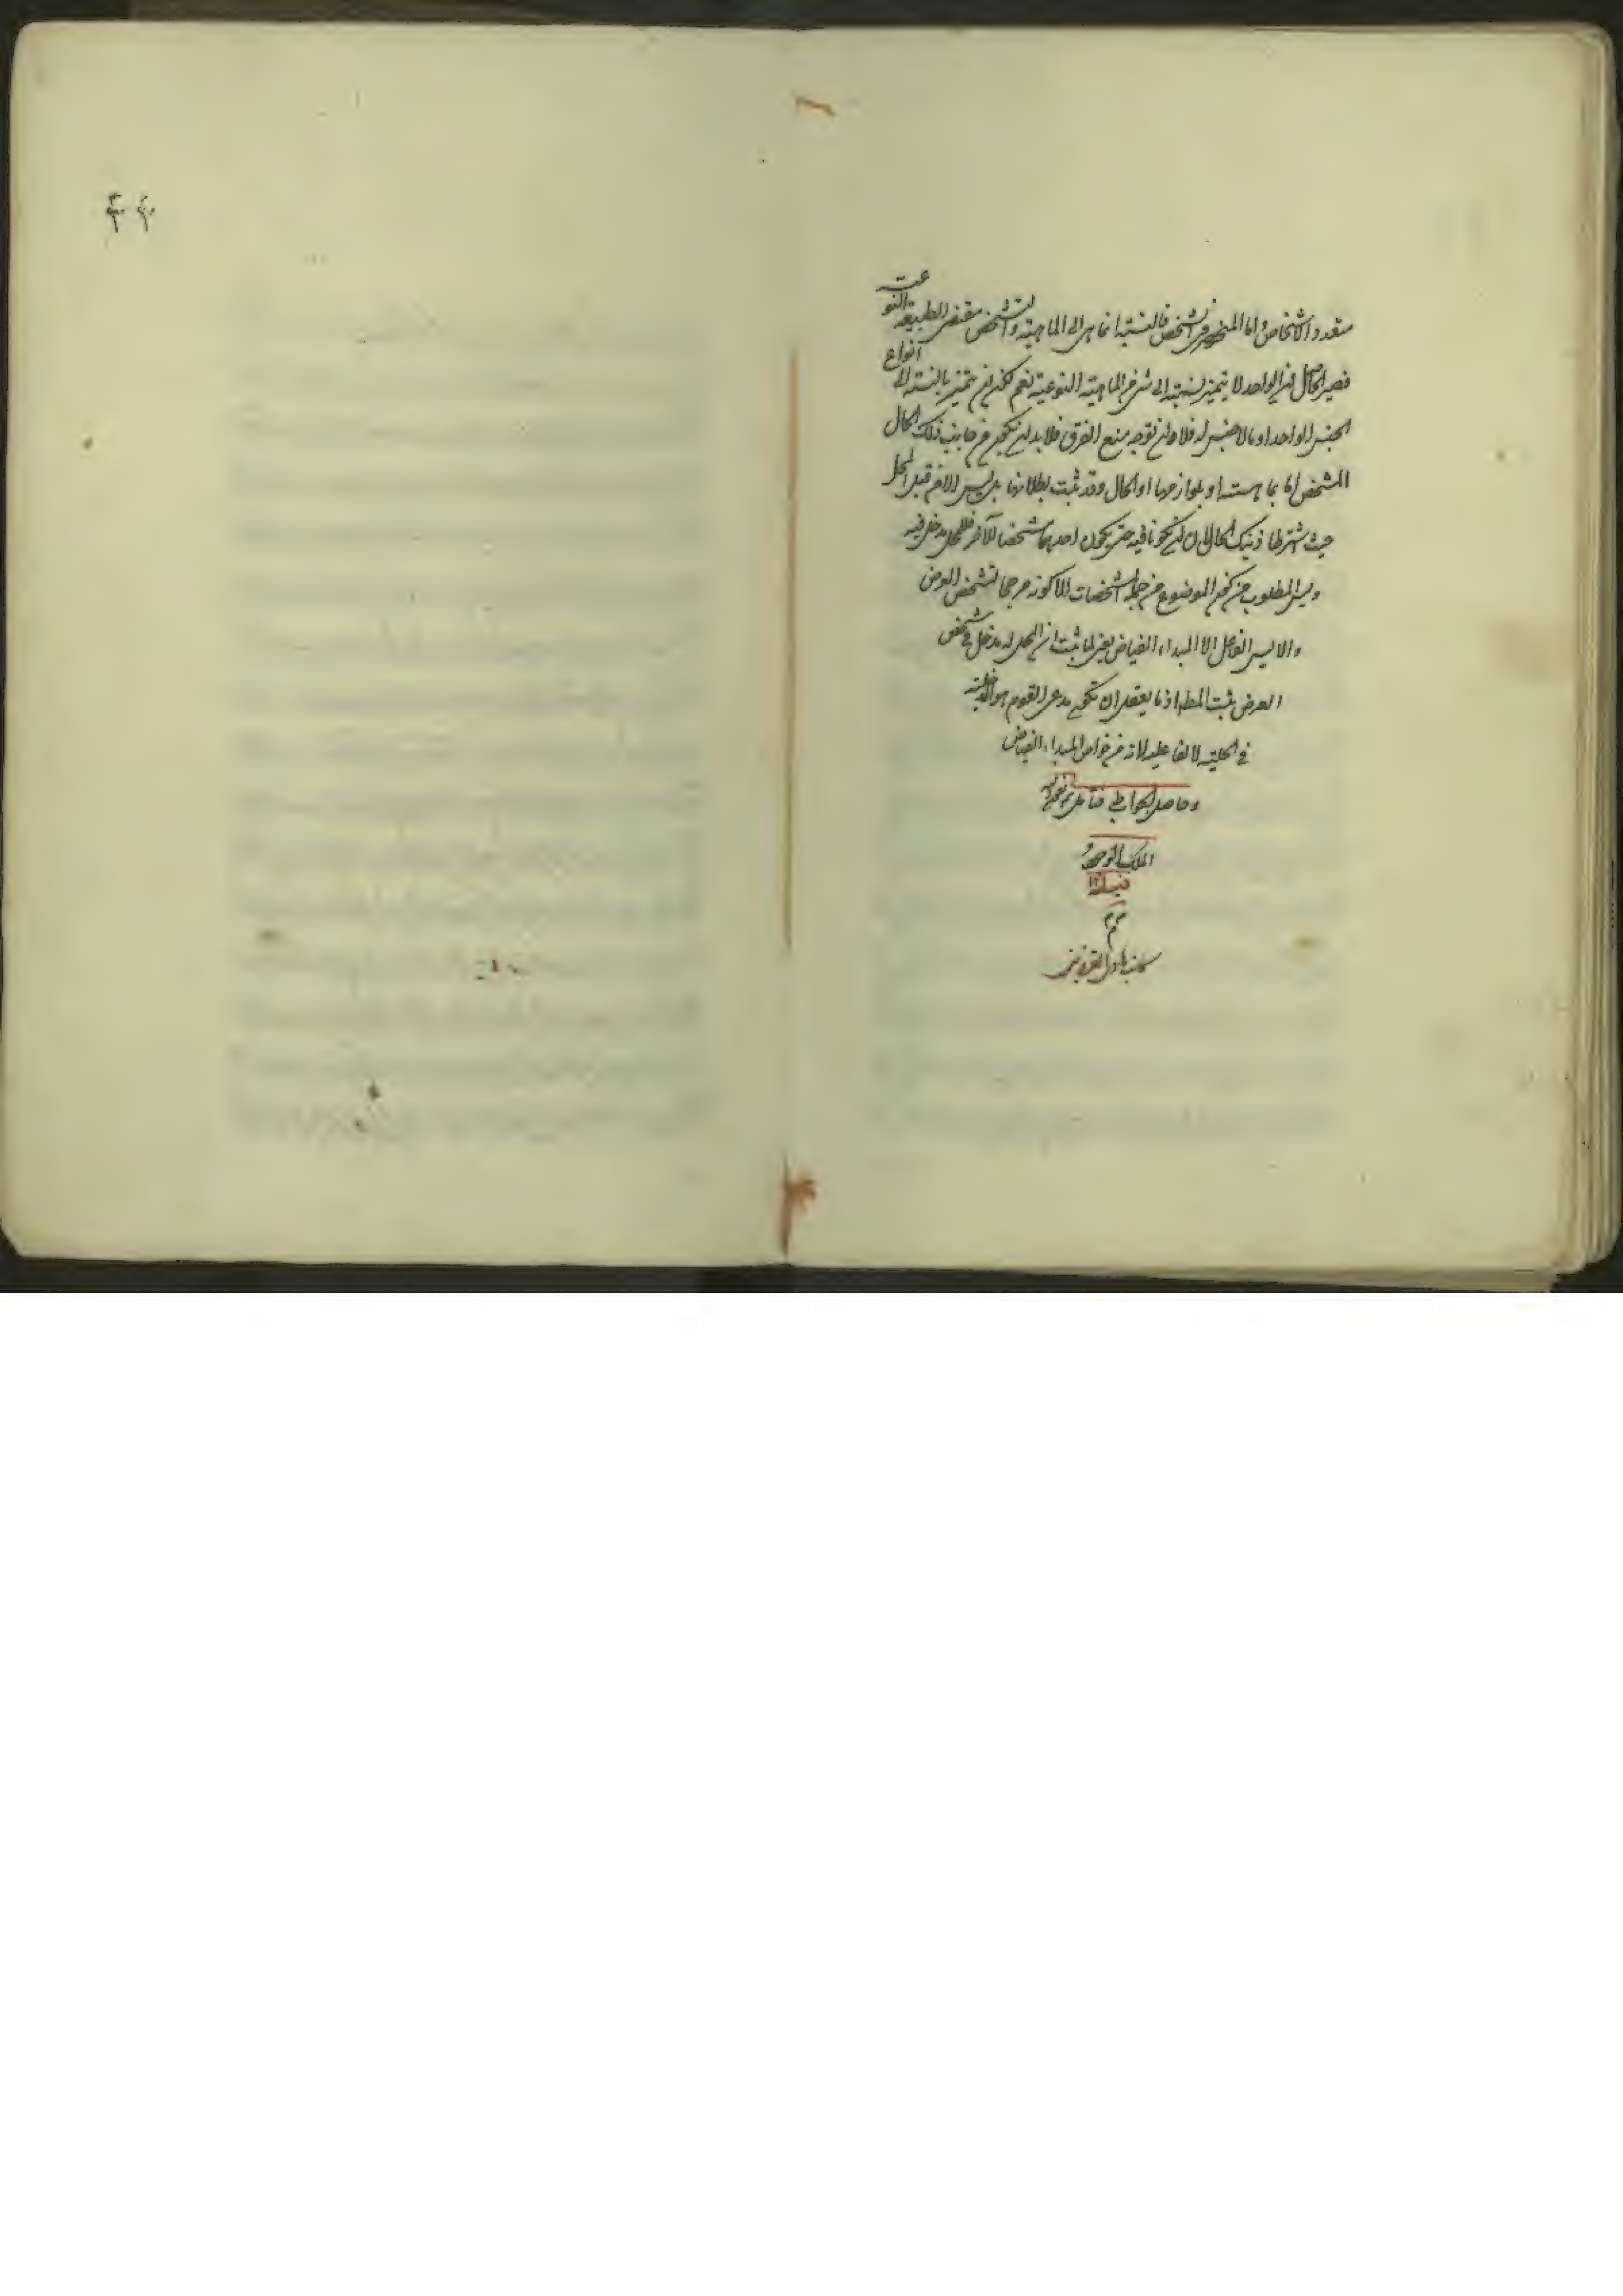 متعدد الاشخاص واما المنحصر فى شخص فالنسبة انما هى الى الماهية والتشخص مقتضى الطبيعة النوعية
فصير الحال ان الواحد لا يتميز بنسبته الى شىء من الماهية النوعية نعم يمكن ان يتميز بالنسبة الى انواع
الجنس الواحد او ما لا جنس له فلا وان توجه منع الفرق فلا بد ان يكون من جانب ذلك الحال
المشخص اما بماهيته او بلوازمها او الحال وقد ثبت بطلانها بل ليس الا من قبل المحل
حيث اشترط ذينك الحالان ان يكونا فيه حتى يكون احدهما مشخصا للآخر فللمحل مدخل فيه
وليس المطلوب من كون الموضوع من جملة المشخصات الا كونه مرجحا لتشخص العرض
والا ليس الفاعل الا المبداء الفياض يعنى لما ثبت ان المحل له مدخل فى تشخص
العرض يثبت المط اذ ما يعقل ان يكون مدعى القوم هو المدخلية
فى الجملة لا الفاعلية لانه من خواص المبداء الفياض
وحاصل الجواب
الملك
سنه
تم
كتبه القزوينى